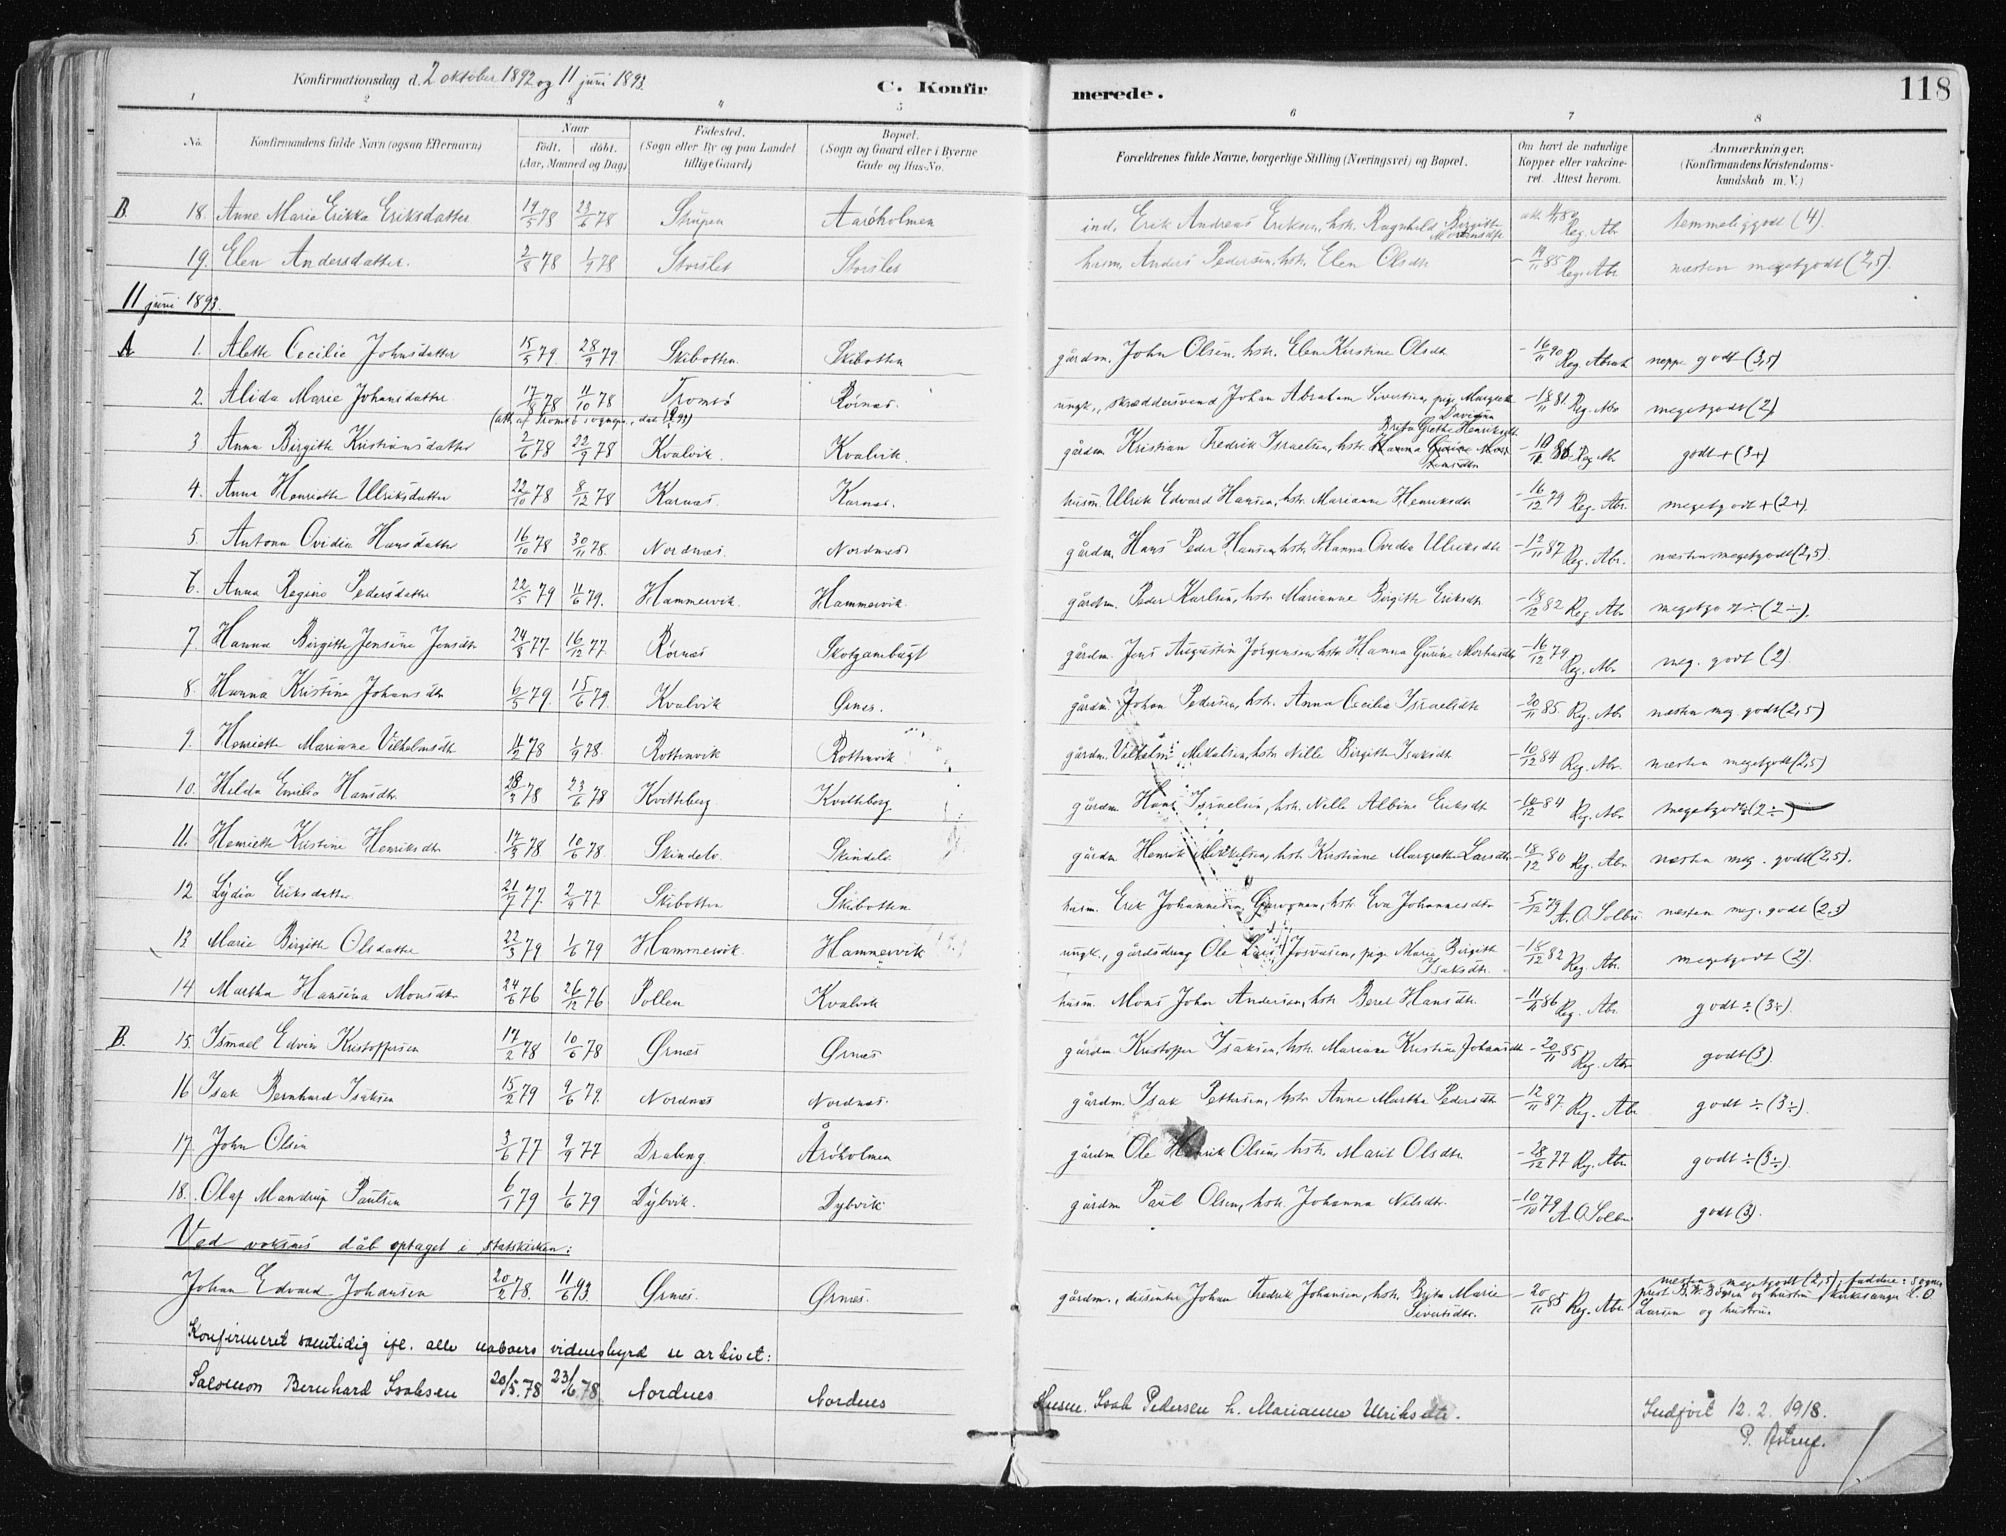 118
Konfirmationsdag d. 2 oktober 1892 og 11 juni 1893.
C. Konfir merede.
1 2 3 4 5 6 7 8
No. Konfirmandens fulde Navn (ogsaa Efternavn) Naar födt. döbt. (Aar, Maaned og Dag) Födested. (Sogn eller By og paa Landet tillige Gaard) Bopæl. (Sogn og Gaard eller i Byerne Gade og Hus-No. Forældrenes fulde Navne, borgerlige Stilling (Næringsvei) og Bopæl. Om havt de naturlige Kopper eller vakcineret. Attest herom. Anmærkninger. (Konfirmandens Kristendomskundskab m. V.)
B. 18. Anne Marie Erikka Eriksdatter 19/5 78 23/6 78 Skupen Aaröholmen ind. Erik Andreas Eriksen, hstr. Ragnhild Birgitte Mortensdtr Reg. Abr temmeliggodt (4).
19. Elen Andersdatter. 2/8 78 1/9 78 Storslet Storslet husm. Anders Pedersen, hstr. Elen Olsdtr - 19/11 85 Reg. Abr. næsten megetgodt (2,5).
11 juni 1893.
A 1. Alette Cecilie Johnsdatter 15/5 79 28/9 79 Skibotten Skibotten gårdm. John Olsen, hstr. Elen Kerstine Olsdtr - 16/11 90 Reg. Abrah neppe godt (3,5)
2. Alida Marie Johansdatter 17/8 78 11/10 78 Tromsö Rörnæs. ungk., skræddersvend Johan Abraham Sivertsen, pige Margrete Davidsen - 18/11 81. Reg. Abr megetgodt (2)
3 Anna Birgitte Kristiansdatter 2/6 78 22/9 78 Kvalvik. Kvalvik. gårdm. Kristian Fredrik Israelsen, hstr. Brita Grethe Henriksdtr. Reg. Abr godt + (3+)
4. Anna Henriette Ulriksdatter 22/10 78 8/12 78 Karnæs. Karnæs. husm. Ulrik Edvard Hansen, hstr. Marianne Henriksdtr - 16/12 79 Reg. Abr. megetgodt + (2+).
5. Antona Ovidia Hansdatter 16/10 78 30/11 78. Nordnæs. Nordnæs gårdm. Hans Peder Hansen, hstr. Hanna Ovidia Ulriksdtr - 12/11 87 Reg. Abr. næsten megetgodt (2,5).
6. Anna Regine Pedersdatter 22/5 79 11/6 79. Hammervik. Hammervik. gårdm. Peder Karlsen, hstr. Marianne Birgitte Eriksdtr. - 18/12 82 Reg. Abr megetgodt ÷ (2÷).
7. Hanna Birgitte Jensine Jensdtr 24/8 77. 16/12 77. Rörnæs Skotgambugt gårdm. Jens Augustin Jörgensen, hstr. Hanna Gurine Mortensdtr - 16/12 79 Reg. Abr. meg. godt (2)
8. Hanna Kristine Johansdtr 6/5 79. 15/6 79. Kvalvik Ørnes. gårdm. Johan Pedersen, hstr. Anna Cecilie Israelsdtr - 20/11 85. Reg. Abr næsten meg. godt (2,5)
9. Henriette Mariane Vilhelmsdtr 11/2 78 1/9 78. Rottenvik Rottenvik gårdm. Vilhelm Mikalsen, hstr. Nille Birgitte Isaksdtr - 10/12 84 Reg. Abr. næsten megetgodt (2,5)
10. Hilda Emilie Hansdtr. 28/3 78 23/6 78 Kvitteberg. Kvitteberg gårdm. Hans Israelsen, hstr. Nille Albine Eriksdtr - 10/12 84 Reg. Abr megetgodt (2÷)
11. Henriette Kristine Henriksdtr 17/3 78 10/6 78 Skindelv. Skindelv. gårdm. Henrik Mikkelsen, hstr. Kristiane Margrethe Larsdtr - 18/12 80 Reg. Abr. næsten meg. godt (2,5).
12 Lydia Eriksdatter 21/7 77. 2/9 77 Skibotten Skibotten husm. Erik Johannesen, hstr. Eva Johannesdtr - 5/12 79 A. O. Solbu næsten meg. godt (2,5)
13 Marie Birgitte Olsdatter 22/3 79 1/6 79 Hammervik. Hammervik ungk., gårdsdreng Ole Josvasen, pige Marie Birgitte Isaksdtr. - 18/12 82 Reg. Abr. megetgodt (2).
14 Martha Hansina Monsdtr 24/6 76 26/12 76 Pollen Kvalvik husm. Mons John Andersen, hstr. Beret Hansdtr. Reg. Abr. godt ÷ (3÷).
B. 15. Ismael Edvin Kristoffersen 17/2 78 10/6 78 Ørnæs Ørnæs gårdm. Kristoffer Isaksen, hstr. Mariane Kristine Johansdtr - 20/11 85 Reg. Abr godt (3)
16 Isak Bernhard Isaksen 15/2 79 9/6 79. Nordnæs Nordnæs. gårdm. Isak Pettersen, hstr. Anne Martha Pedersdtr - 12/11 87. Reg. Abr godt ÷ (3÷).
17. John Olsen 3/6 77 9/9 77 Draleng. Åröholmen gårdm. Ole Henrik Olsen, hstr. Marit Olsdtr. - 28/12 77 Reg. Abr godt ÷ (3÷).
18. Olaf Mandrup Paulsen 6/1 79 1/6 79 Dybvik. Dybvik gårdm. Paul Olsen, hstr. Johanna Nilsdtr. - 10/10 79 A. O. Solbu godt (3).
Ved voksnes dåb optaget i statskirken:
Johan Edvard Johansen 20/2 78. 11/6 93. Ørnæs. Ørnæs. gårdm., dissenter Johan Fredrik Johansen, hstr. Brita Marie Sivertsdtr. - 20/11 85 Reg. Abr næsten megetgodt (2,5); faddere: sogneprest og hustru, kirkesanger L. O Larsen og hustru.
Konfirmeret samtidig ifl. alle naboers vidnesbyrd se arkivet:
Salomon Bernhard Isaksen 20/5. 78 23/6. 78 Nordnes Nordnes Husm. Isak Pedersen h. Marianne Ulriksdtr. Indført 12. 2. 1918.
P. Astrup.